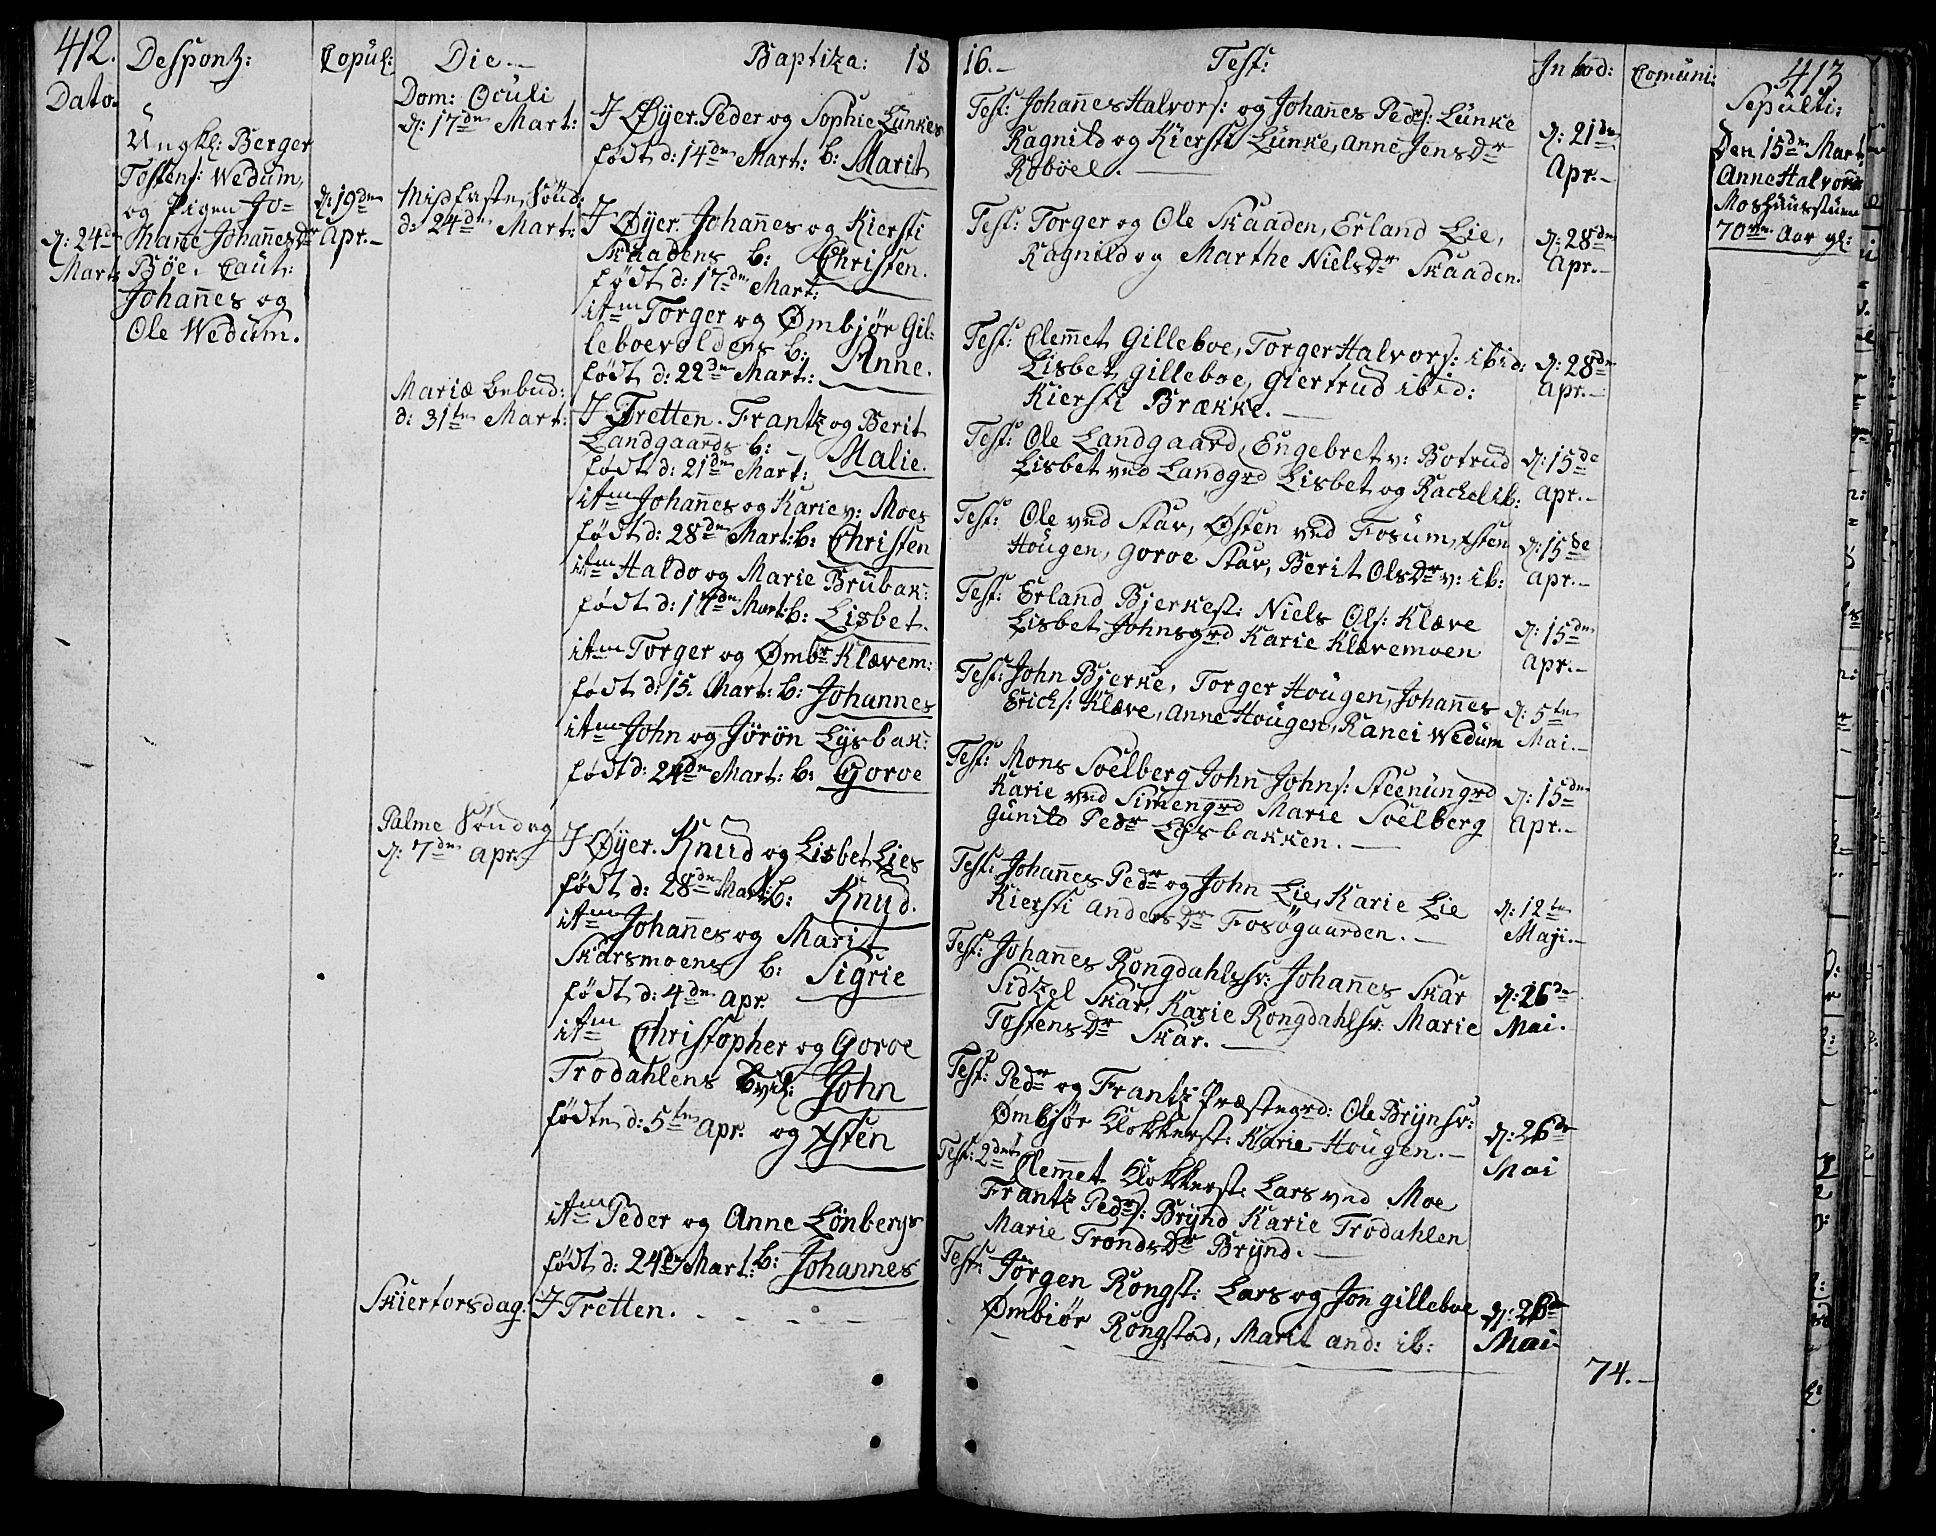 412.
Desponz:
Copul:
Die
Baptiza: 18
Dato.
Ungk: Berger
Tostens: Wedum,
og Pigen Jo-
hane Johañesdr
Böe. Caut:
Johañes og
Ole Wedum.
d: 24de
Mart:
d: 19de
Apr.
Dom: Oculi
d: 17de Mart:
I Öyer. Peder og Sophie Lunkes
født d: 14de Mart: b: Marit
Midfaste Sönd:
d: 24de Mart:
I Öyer. Johañes og Kiersti
Skaadens b: Christen.
født d: 17de Mart:
itm Torger og Ømbjör Gil-
leboevoldens b:
født d: 22de Mart: Anne.
Mariæ bebud:
d: 31te Mart:
I Tretten. Frantz og Berit
Landgaards b:
født d: 21de Mart: Malie.
itm Johañes og Karie v: Moes
født d: 28de Mart: b: Christen
itm Haldo og Marie Brubak:
født d: 17de Mart: b: Lisbet.
itm Torger og Ømbr Klævem:
født d: 15. Mart: b: Johannes
itm John og Jörön Lysbak:
født d: 24de Mart: b: Goroe
Palme Söndag
d: 7de Apr:
I Öyer. Knud og Lisbet Lies
født d: 28de Mart: b: Knud.
itm Johañes og Marit
Skarsmoens b: Sigrie
født d: 4de Apr.
itm Christopher og Goroe
Trodahlens tvil: John
födte d: 5te Apr. og Xsten
itm Peder og Anne Lönbergs
født d: 24de Mart: b: Johannes
Skiertorsdag: I Tretten.
16.
Test:
Introd:
Comuni:
413
Sepulti:
Test: Johañes Halvors: og Johañes Peds: Lunke
Ragnild og Kiersti Lunke, Anne Jensdr
Roböel.
d: 21de
Apr.
Test: Torger og Ole Skaaden, Erland Lie,
Ragnild og Marthe Nielsdr Skaaden.
d: 28de
Apr.
Test: Clem̃et Gilleboe, Torger Halvors: ibid:
Lisbet Gilleboe, Giertrud ibid:
Kiersti Brække.
d: 28de
Apr.
Test: Ole Landgaard, Engebret v: Botrud
Lisbet ved Landgrd Lisbet og Rachel ib:
d: 15de
Apr.
Test: Ole ved Star, Østen ved Fosum, Xsten
Hougen, Goroe Star, Berit Olsdr v: ib:
d: 15de
Apr.
Test: Erland Bjerkest: Niels Ols: Klæve
Lisbet Johnsgrd Karie Klævemoen
d: 15de
Apr.
Test: John Bjerke, Torger Hougen, Johañes
Ericks: Klæve, Anne Hougen, Ranei Wedum
d: 5te
Mai.
Test: Mons Soelberg John Johns: Steenungrd
Karie ved Simengrd Marie Soelberg
Gunild Pedr Lysbakken.
d: 15de
Apr.
Test: Johañes Pedr og John Lie, Karie Lie
Kiersti Andersdr Fosögaarden.
d: 12te
Maji.
Test: Johañes Rongdahlsv: Johañes Skar
Sidzel Skar, Karie Rongdahlsv: Marie
Tostensdr Skar.
d: 26de
Mai.
Test: Pedr og Frantz Præstegrd: Ole Brynsv:
Ømbjör Klokkerst: Karie Hougen.
d: 26de
Mai
Test: 2dens Clem̃et Klokkerst: Lars ved Moe
Frantz Peds: Brynd Karie Trodahlen
Marie Trondsdr Brynd.
Test: Jörgen Rongst: Lars og Jon Gilleboe
Ømbiör Rongstad, Marit And: ib:
d: 26de
Mai
74.
Den 15de Mart
Anne Halvors
Moshuusstuen
70 Aar gl: